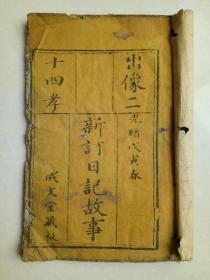 出像二
十四孝
光緒戊寅春
新訂日記故事
成文堂藏板